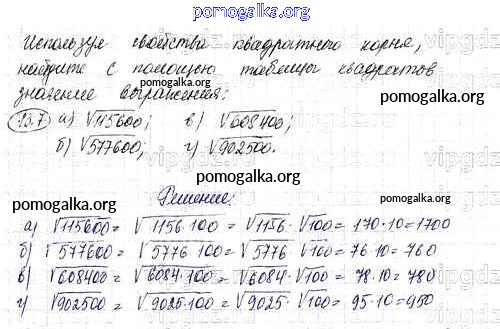 pomogalka.org
Используя свойства квадратного корня,
найдите с помощью таблицы квадратов
значение выражения:
pomogalka.org
13.7 а) √115600; в) √608400;
б) √577600; г) √902500.
pomogalka.org
pomogalka.org
Решение:
pomogalka.org
pomogalka.org
а) √115600 = √1156·100 = √1156·√100 = 170·10=1700
б) √577600 = √5776·100 = √5776·√100 = 76·10=760
в) √608400 = √6084·100 = √6084·√100 = 78·10=780
г) √902500 = √9025·100 = √9025·√100 = 95·10=950
pomogalka.org